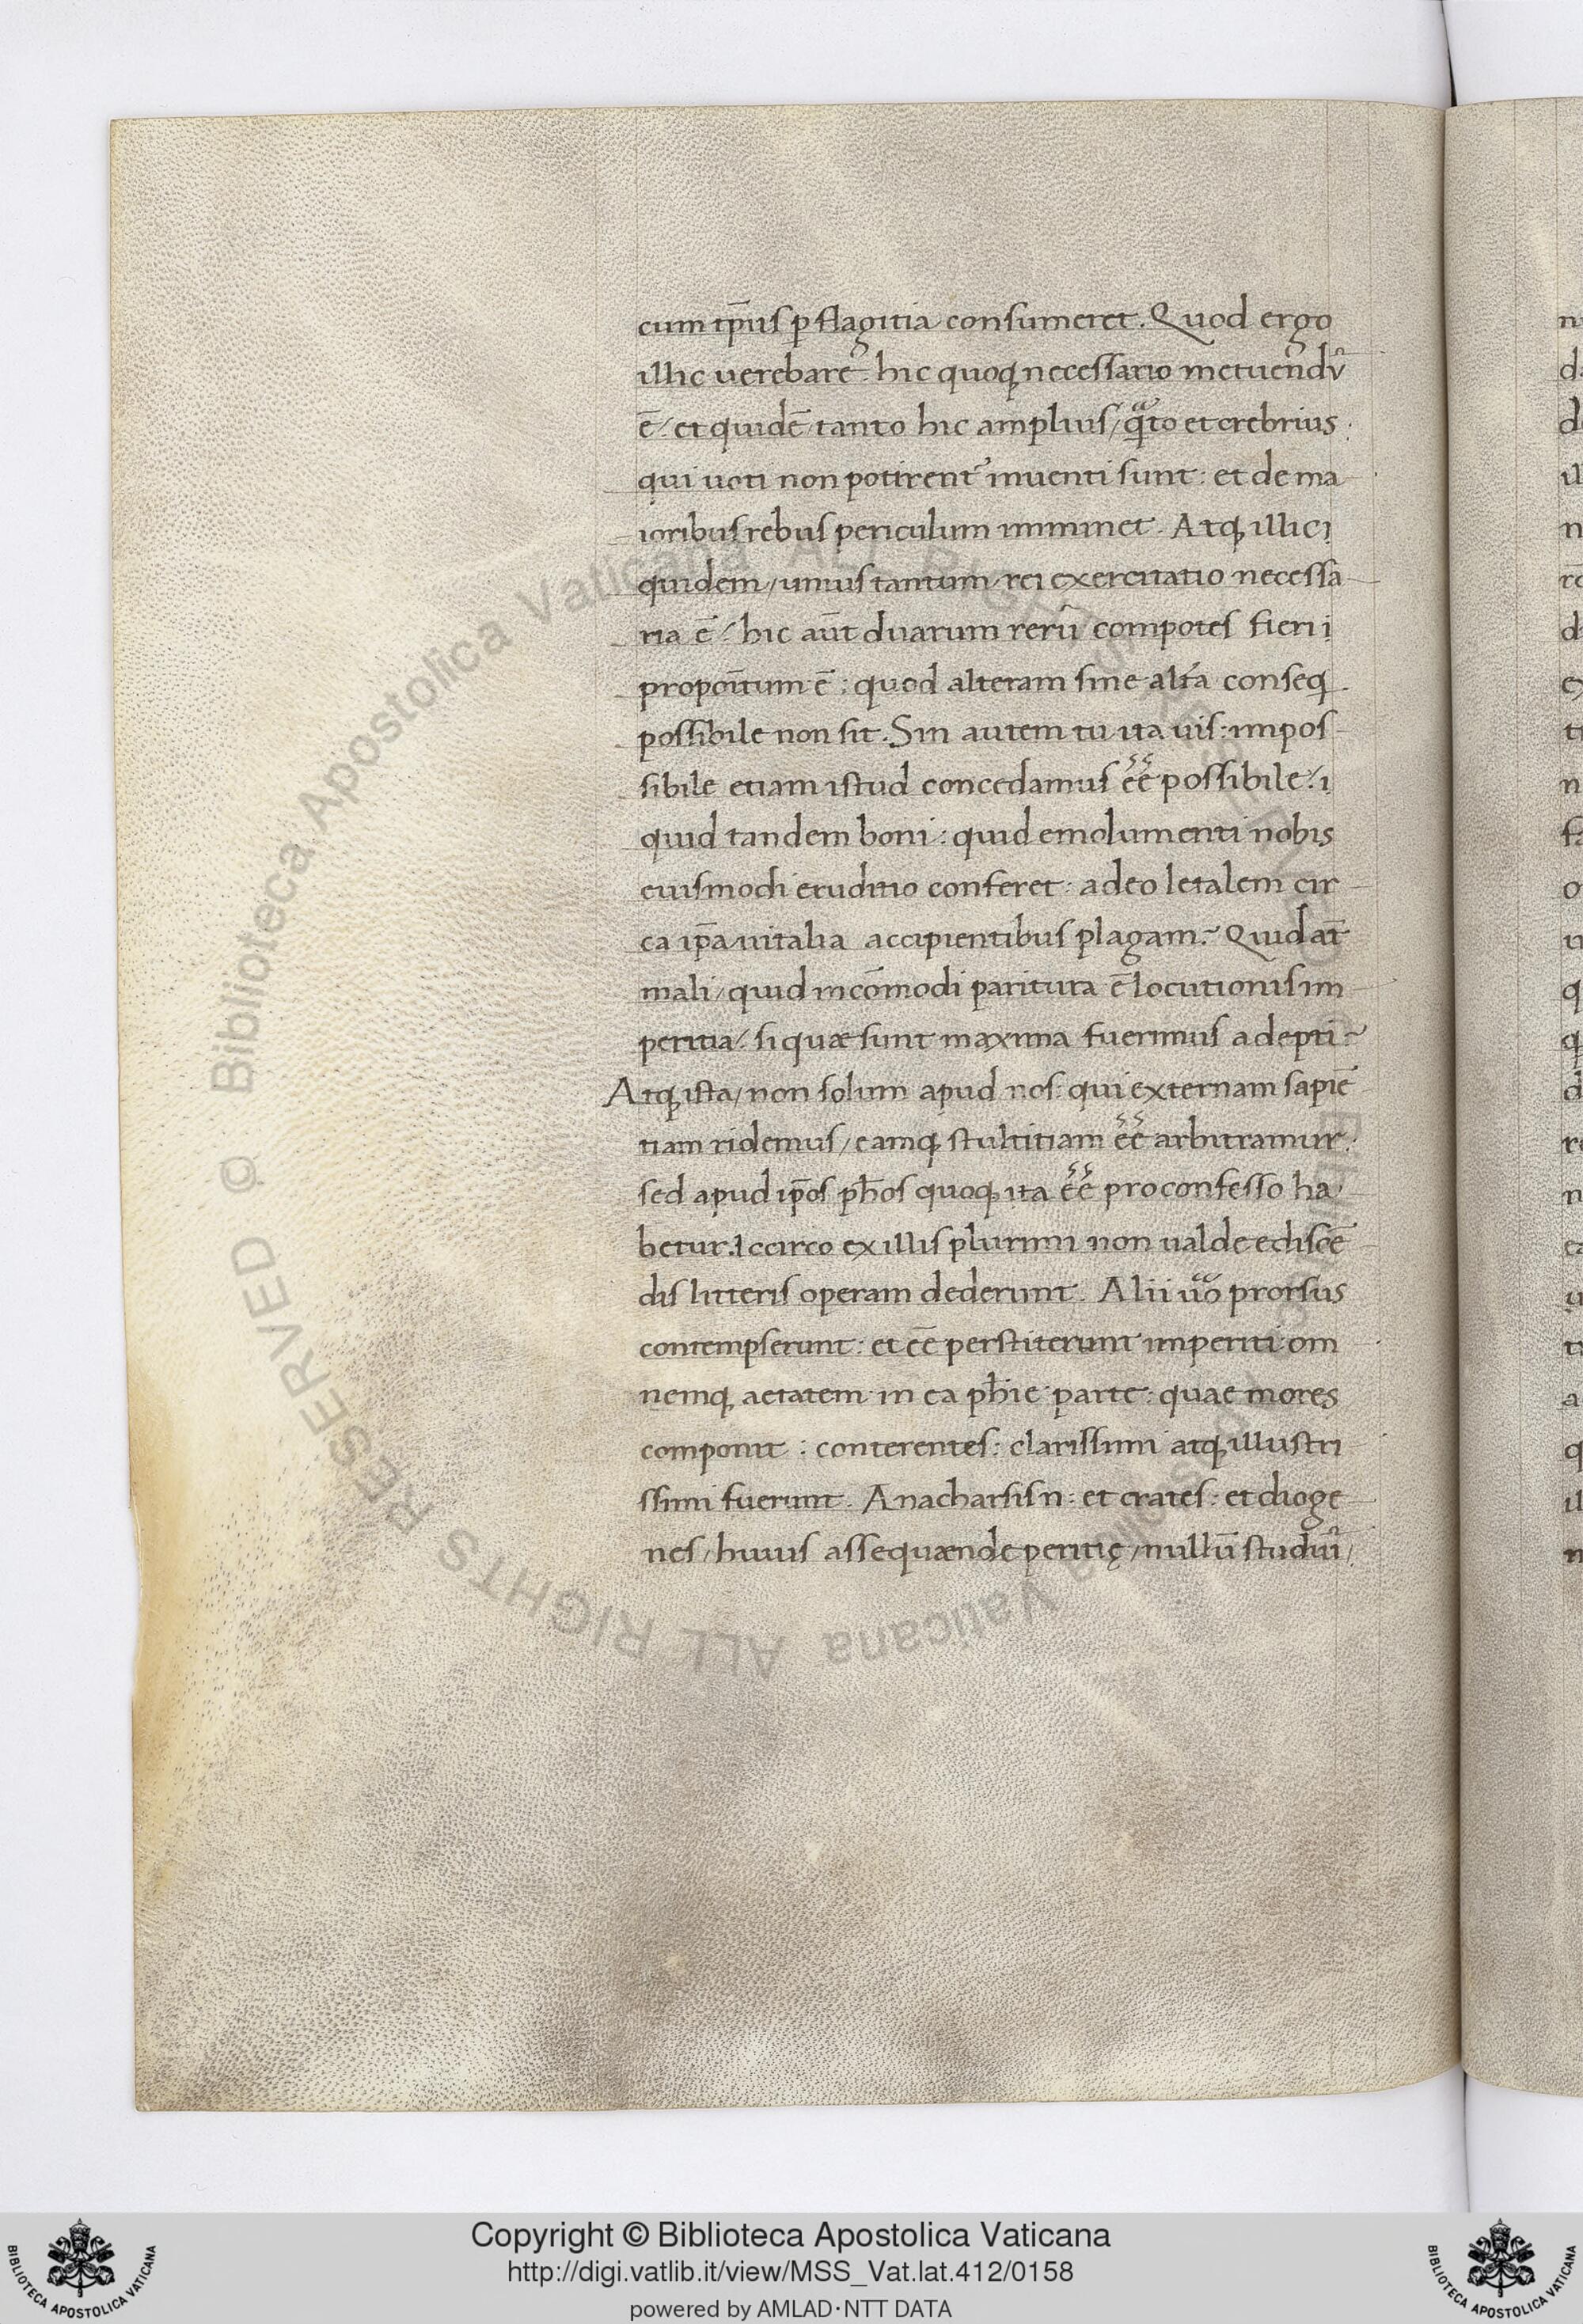 cum tp̄us p flagitia consumeret. Quod ergo
illic uerebare᷑: hic quoq necessario metuendũ
ē: et quidē tanto hic amplius/ qᷓto et crebrius
qui uoti non potirent᷑ inuenti sunt: et de ma
ioribus rebus periculum imminet. Atq illic i
quidem/ unius tantum rei exercitatio necessa
ria ē: hic aūt duarum rerū compotes fieri i
propoītum ē: quod alteram sine altã conseq
possibile non sit. Sin autem tu ita uis: impos
sibile etiam istud concedamus eē possibile: i
quid tandem boni: quid emolumenti nobis
euismodi eruditio conferet: adeo letalem cir
ca ip̄a uitalia accipientibus plagam? Quid at̄
mali/ quid incōmodi paritura ē locutionis im
peritia: si quæ sunt maxima fuerimus adepti?
Atq ista/ non solum apud nos: qui externam sapiē
tiam ridemus/ eamq stultitiam eē arbitramur:
sed apud ip̄os ph̄os quoq ita eē pro confesso ha
betur. Iccirco ex illis plurimi non ualde ediscē
dis litteris operam dederunt. Alii uᷓo prorsus
contempserunt: et eē perstiterunt imperiti: om
nemq aetatem in ea ph̄ie parte: quae mores
componit: conterentes: clarissimi atq illustri
ssimi fuerunt. Anacharsis n: et crates: et dioge
nes/ huius assequænde peritię/ nullū studiũ/
Copyright © Biblioteca Apostolica Vaticana
http://digi.vatlib.it/view/MSS_Vat.lat.412/0158
powered by AMLAD·NTT DATA